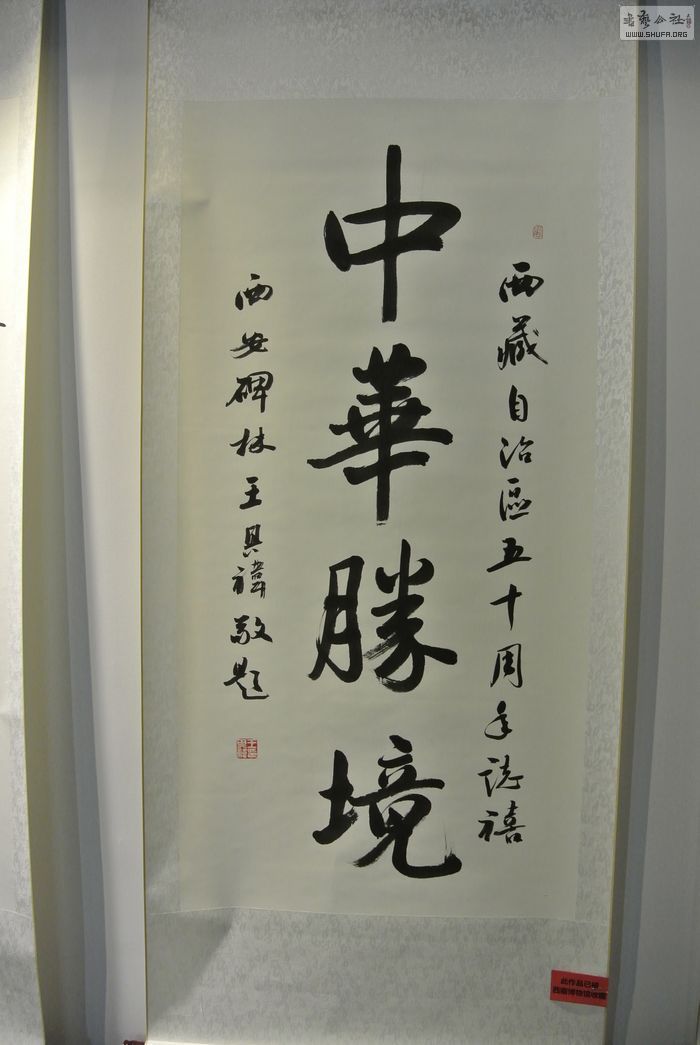 西藏自治區五十周年誌禧
中華勝境
西安碑林王具禕敬題
此作品已被
西藏博物馆收藏
WWW.SHUFA.ORG